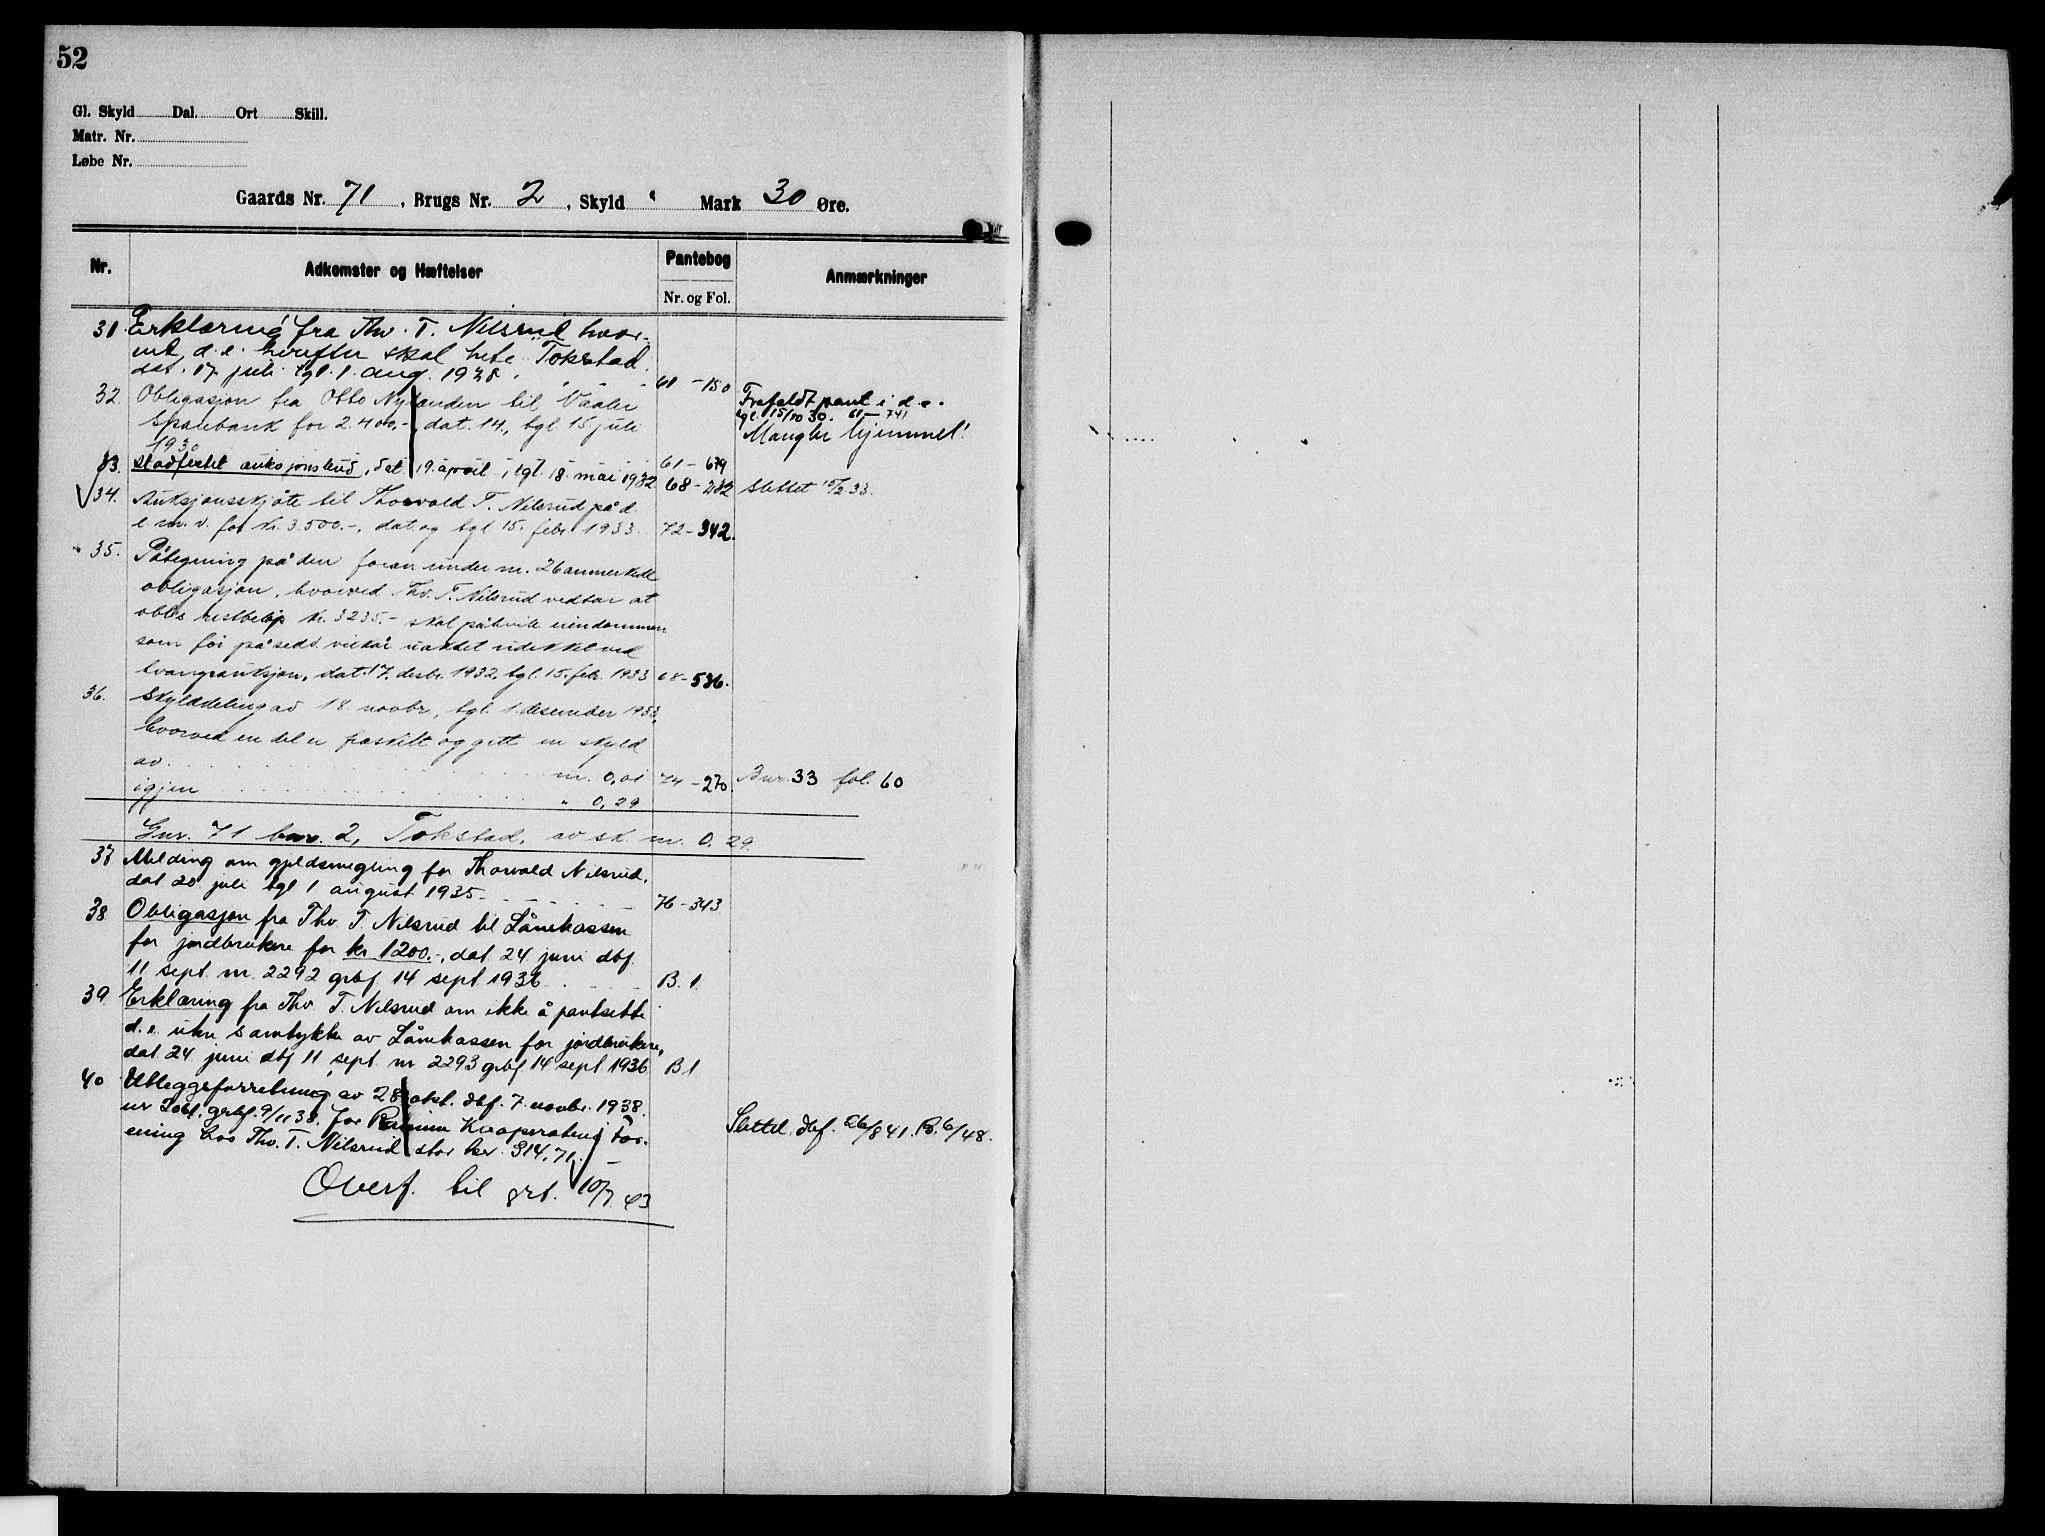 52
Gl. Skyld Dal. Ort Skill.
Matr. Nr.
Løbe Nr.
Gaards Nr. 71, Brugs Nr. 2, Skyld " Mark 30 Øre.
Nr. Adkomster og Hæftelser Pantebog Nr. og Fol. Anmærkninger
31. Erklæring fra Thv. T. Nilsrud hvor-
ved d.e. herefter skal hete Tokstad.
dat. 17 juli tgl. 1. aug. 1928. 61 - 150
32. Obligasjon fra Otto Nylænden til Vaaler Frafaldt pant i d.e.
Sparebank for 2.400,-, dat. 14., tgl 15 juli tgl. 15/10 30. 61-741
1930 61 - 679 Mangler hjemmel!
33. Stadfestet auksjonsbud, dat. 19. april, tgl. 18. mai 1932 68 - 232 Slettet 15/2 33.
34. Auksjonsskjøte til Thorvald T. Nilsrud på d.
e m.v. for kr. 3500.-, dat og tgl 15. febr. 1933. 72 - 342.
35. Påtegning på den foran under nr. 26 anmerkede
obligasjon, hvorved Thv. T. Nilsrud vedtar at
obl.s restbeløp kr. 3235.- skal påhvile eiendommen
som før på sedv. vilkår uaktet udekket ved
tvangsauksjon, dat. 17. desbr. 1932, tgl. 15. febr. 1933 68-536.
36. Skylddeling av 18. novbr., tgl. 1. desember 1933,
hvorved en del er fraskilt og gitt en skyld
av m. 0,01 74 - 270. Bnr. 33 fol. 60
igjen " 0,29
Gnr. 71 bnr. 2, Tokstad, av sk. m. 0.29.
37 Melding om gjeldsmegling for Thorvald Nilsrud,
dat 20 juli tgl 1 august 1935 76-343
38 Obligasjon fra Thv T. Nilsrud til Lånekassen
for jordbrukere for kr 1200.-, dat 24 juni dbf.
11 sept. nr. 2292 grbf 14 sept 1936 B. 1
39 Erklæring fra Thv T. Nilsrud om ikke å pantsette
d.e. uten samtykke av Lånekassen for jordbrukere,
dat 24 juni dbf 11 sept nr 2293 grbf 14 sept 1936 B 1
40 Utleggsforretning av 28 okt. dbf. 7. novbr. 1938.
nr grbf. 9/11 38. for Kooperative For-
ening hos Thv. T. Nilsrud stor kr. 314,71. Slettet. dbf. 26/8 41. B. 6/48.
Overf. til grt. 10/7 43